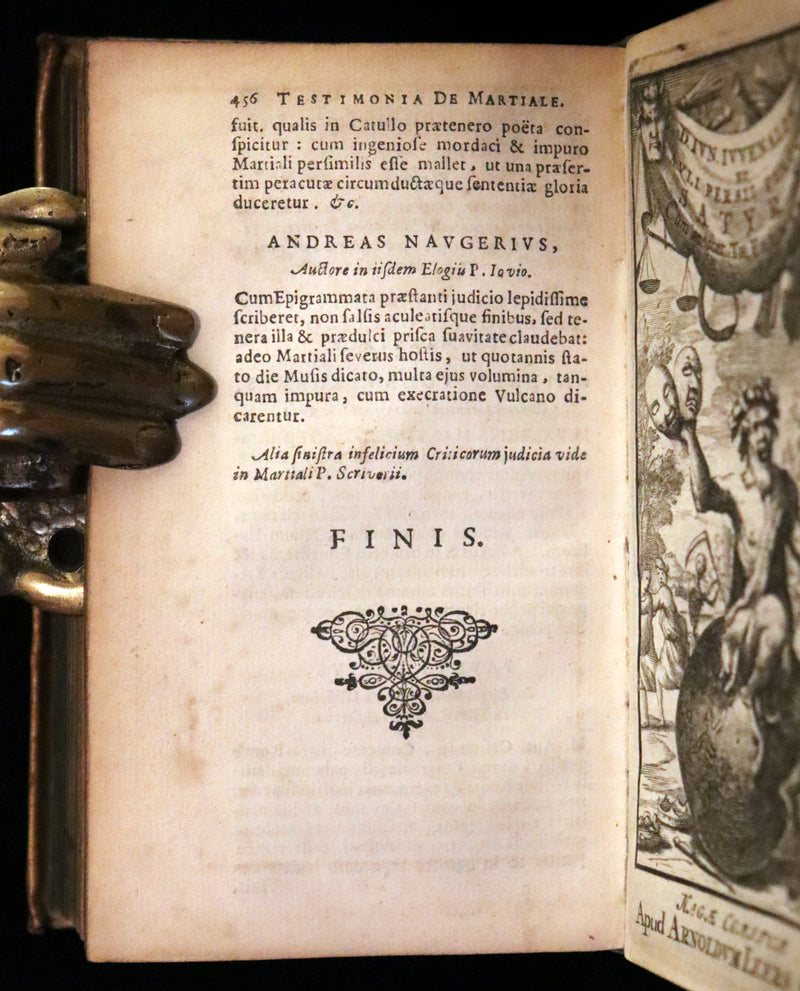 456 TESTIMONIA DE MARTIALE.
fuit, qualis in Catullo prætenero poëta con-
ſpicitur : cum ingenioſe mordaci & impuro
Martiali perſimilis eſſe mallet, ut una præſer-
tim peracutæ circumductæque ſententiæ gloria
duceretur. &c.
ANDREAS NAVGERIVS,
Auctore in iiſdem Elogiis P. Iovio.
Cum Epigrammata præſtanti judicio lepidiſſime
ſcriberet, non ſalſis aculeatiſque finibus, ſed te-
nera illa & prædulci priſca ſuavitate claudebat:
adeo Martiali ſeverus hoſtis, ut quotannis ſta-
to die Muſis dicato, multa ejus volumina, tan-
quam impura, cum execratione Vulcano di-
carentur.
Alia ſiniſtra infelicium Criticorum judicia vide
in Martiali P. Scriverii.
FINIS.
D. IVN. IVVENAL
ET
SATYR
HAGÆ COMITUM
Apud ARNOLDVM LEERS